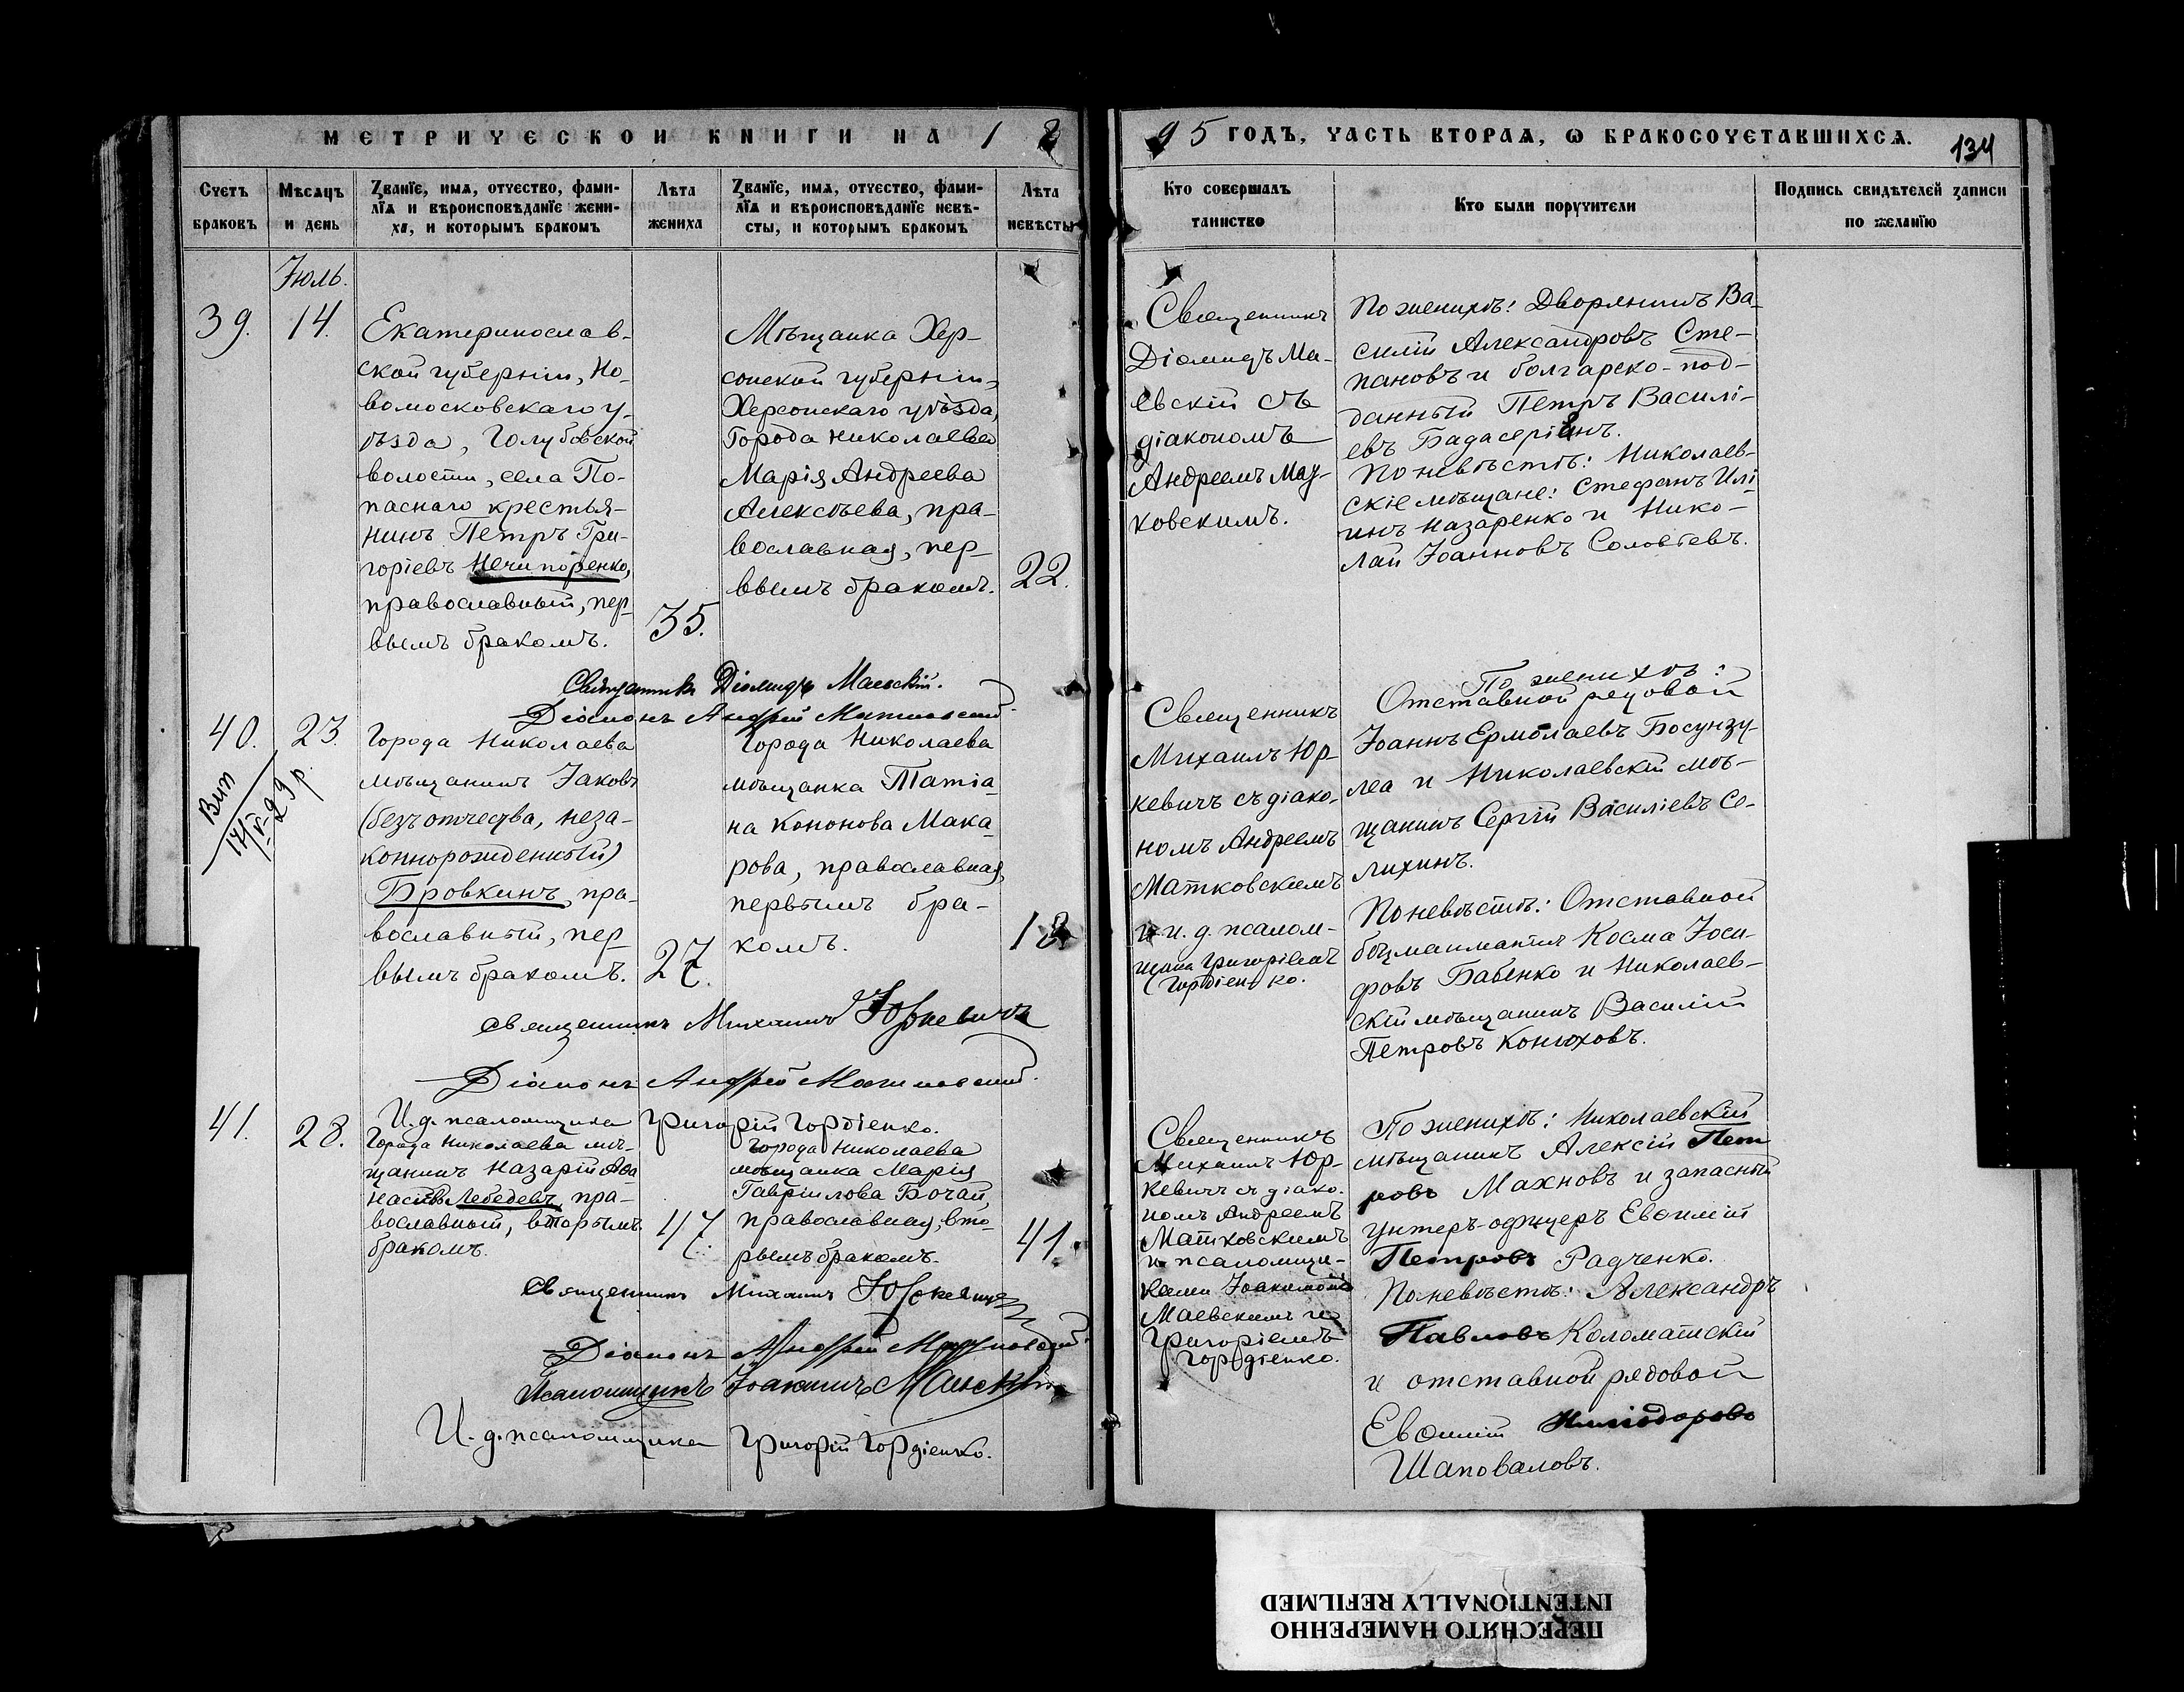 МЕТРИЧЕСКОЙ КНИГИ НА 18
95 ГОДЪ, ЧАСТЬ ВТОРАЯ, Ѡ БРАКОСОЧЕТАВШИХСЯ.
134
Счетъ браковъ
Мѣсяцъ и день
Званіе, имя, отчество, фами-
лія и вѣроисповѣданіе жени-
ха, и которымъ бракомъ
Лѣта жениха
Званіе, имя, отчество, фами-
лія и вѣроисповѣданіе невѣ-
сты, и которымъ бракомъ
Лѣта невѣсты
Кто совершалъ таинство
Кто были поручители
Подпись свидѣтелей записи по желанію
Іюль.
39.
14.
Екатеринослав-
ской губерніи, Но-
вомосковскаго у-
ѣзда, Голубовской
волости, села По-
паснаго крестья-
нинъ Петръ Гри-
горіевъ Нечипоренко,
православный, пер-
вымъ бракомъ.
35.
Мѣщанка Хер-
сонской губерніи,
Херсонскаго уѣзда,
Города Николаева
Марія Андреева
Алексѣева, пра-
вославная, пер-
вымъ бракомъ.
22.
Священникъ
Діомидъ Ма-
евскій съ
діакономъ
Андреемъ Мат-
ковскимъ.
По женихѣ: Дворянинъ Ва-
силій Александровъ Сте-
пановъ и болгарско-под-
данный Петръ Василі-
евъ Багдасеріянъ.
По невѣстѣ: Николаев-
скіе мѣщане: Стефанъ Илі-
инъ Назаренко и Нико-
лай Іоанновъ Соловьевъ.
Священникъ Діомидъ Маевскій.
Діаконъ Андрей Матковскій
40.
23.
Вип
17/V-29 р
Города Николаева
мѣщанинъ Іаковъ
(безъ отчества, неза-
коннорожденный)
Бровкинъ, пра-
вославный, пер-
вымъ бракомъ.
27.
Города Николаева
мѣщанка Татіа-
на Кононова Мака-
рова, православная,
первымъ бра-
комъ.
18
Священникъ
Михаилъ Юр-
кевичъ съ діако-
номъ Андреемъ
Матковскимъ
и и. д. псалом-
щика Григоріемъ
Гордіенко.
По женихѣ:
Отставной рядовой
Іоаннъ Ермолаевъ Босунзу-
леа и Николаевскій мѣ-
щанинъ Сергій Василіевъ Се-
лихинъ.
По невѣстѣ: Отставной
боцманматъ Косма Іоси-
фовъ Бабенко и Николаев-
скій мѣщанинъ Василій
Петровъ Конюховъ.
Священникъ Михаилъ Юркевичъ
Діаконъ Андрей Матковскій.
И. д. псаломщика Григорій Гордіенко.
41.
28.
Города Николаева мѣ-
щанинъ Назарій Аѳа-
насіевъ Лебедевъ, пра-
вославный, вторымъ
бракомъ.
47.
Города Николаева
мѣщанка Марія
Гавріилова Бочай
православная, вто-
рымъ бракомъ.
41.
Священникъ
Михаилъ Юр-
кевичъ съ діако-
номъ Андреемъ
Матковскимъ
и псаломщи-
ками Іоакимомъ
Маевскимъ и
Григоріемъ
Гордіенко.
По женихѣ: Николаевскій
мѣщанинъ Алексій Пет
ровъ Махновъ и запасный
унтеръ-офицеръ Евѳимій
Петровъ Радченко.
По невѣстѣ: Александръ
Павловъ Коломатскій
и отставной рядовой
Евѳимій
Шаповаловъ.
Священникъ Михаилъ Юркевичъ
Діаконъ Андрей Матковскій
Псаломщикъ Іоакимъ Маевскій
И. д. псаломщика Григорій Гордіенко.
ПЕРЕСНЯТО НАМЕРЕННО
INTENTIONALLY REFILMED